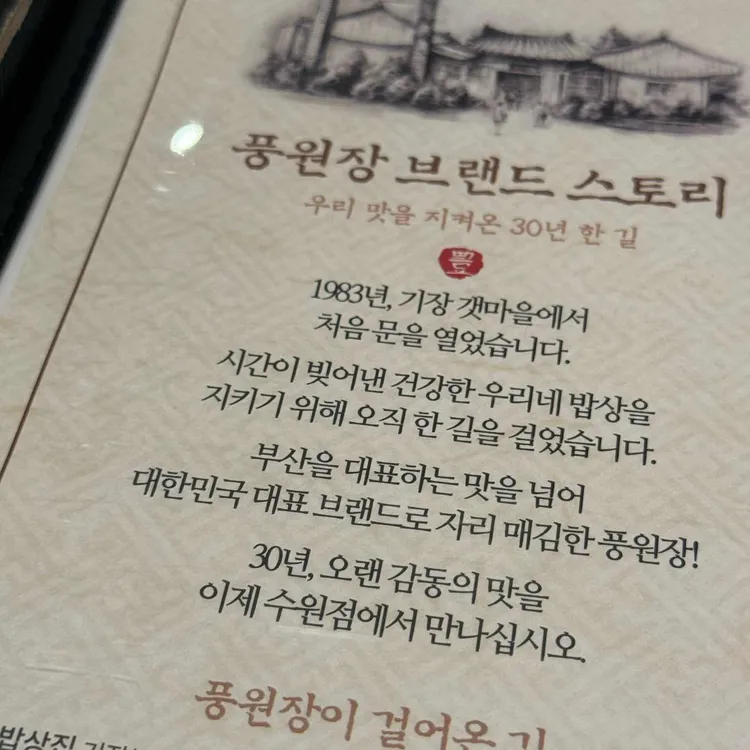 풍원장 브랜드 스토리
우리 맛을 지켜온 30년 한 길
1983년, 기장 갯마을에서
처음 문을 열었습니다.
시간이 빚어낸 건강한 우리네 밥상을
지키기 위해 오직 한 길을 걸었습니다.
부산을 대표하는 맛을 넘어
대한민국 대표 브랜드로 자리 매김한 풍원장!
30년, 오랜 감동의 맛을
이제 수원점에서 만나십시오.
풍원장이 걸어온 기
밥상집